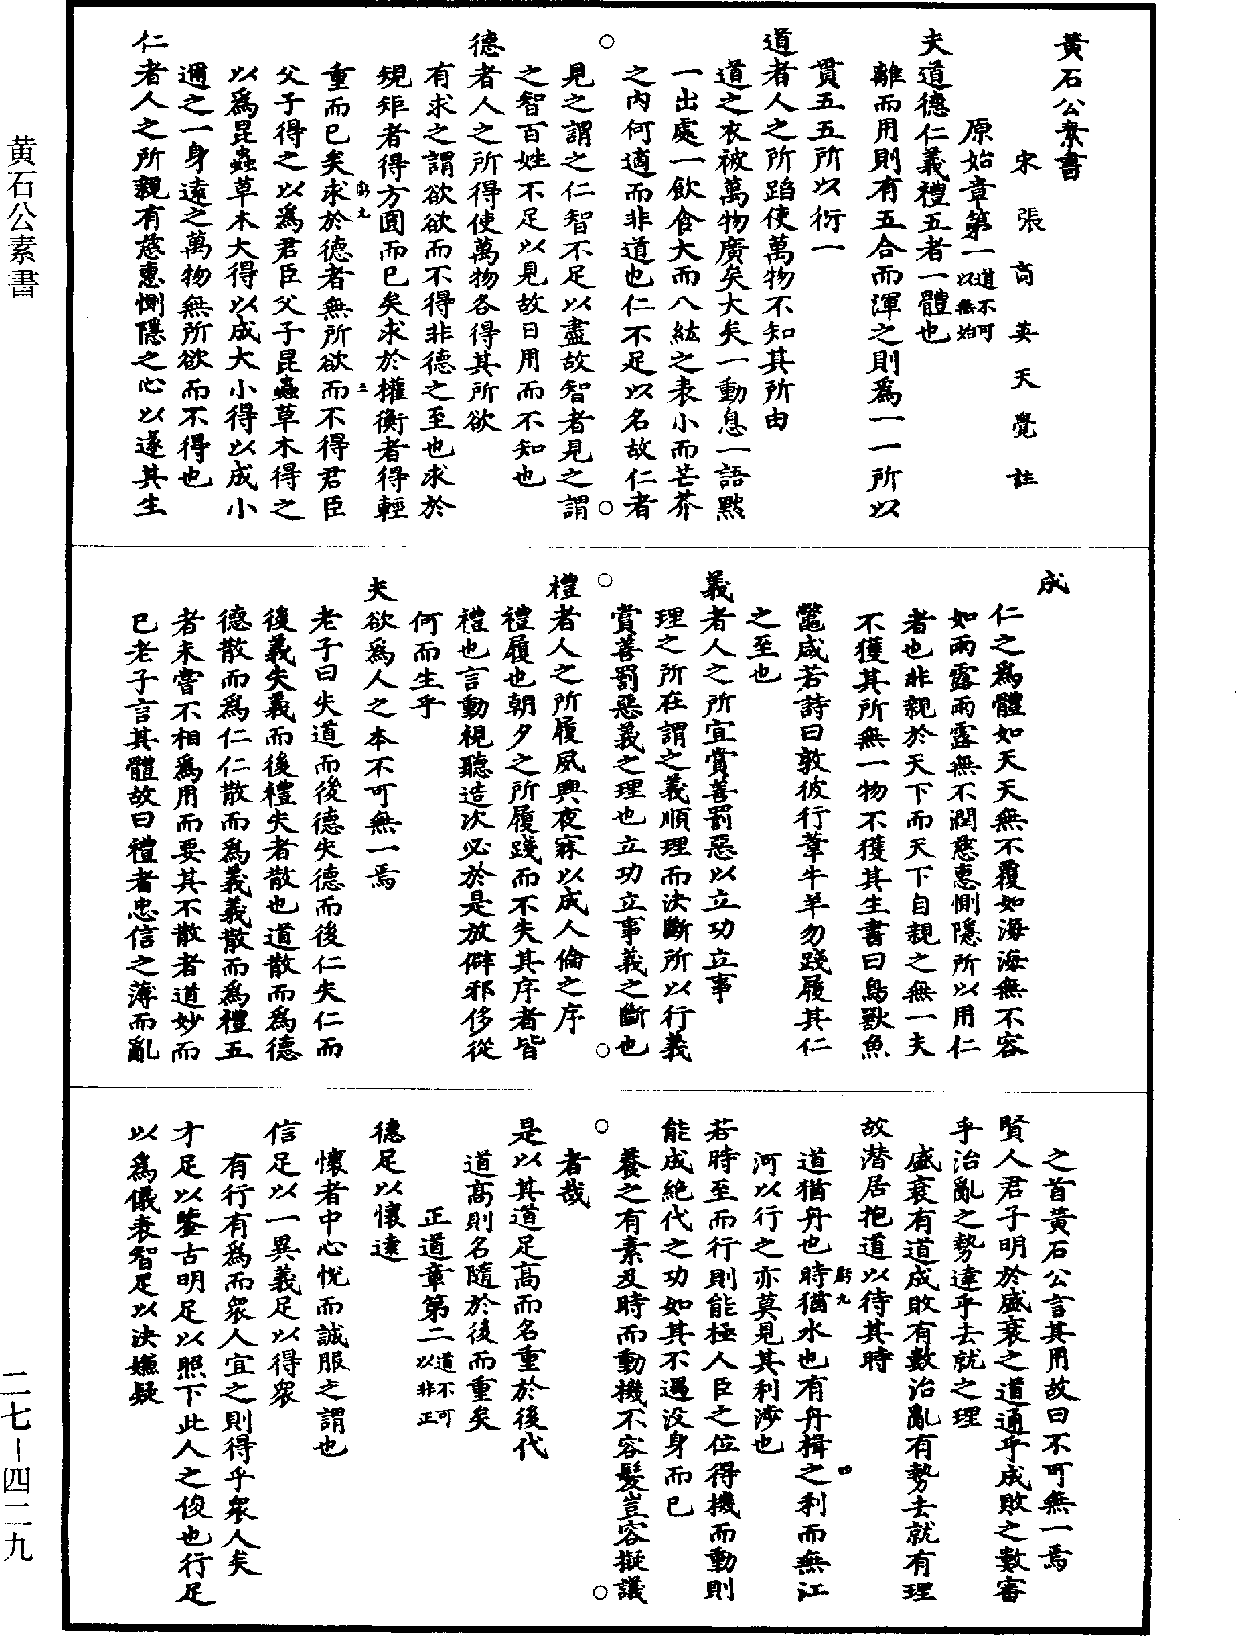 黃石公素書
宋張商英天覺註
原始章第一道不可以無始
夫道德仁義禮五者一體也
離而用則有五合而渾之則爲一一所以
貫五五所以衍一
道者人之所蹈使萬物不知其所由
道之衣被萬物廣矣大矣一動息一語默
一出處一飲食大而八紘之表小而芒芥
之內何適而非道也仁不足以名故仁者
見之謂之仁智不足以盡故智者見之謂
之智百姓不足以見故日用而不知也
德者人之所得使萬物各得其所欲
有求之謂欲欲而不得非德之至也求於
規矩者得方圓而已矣求於權衡者得輕
重而已矣求於德者無所欲而不得君臣
父子得之以爲君臣父子昆蟲草木得之
以爲昆蟲草木大得以成大小得以成小
邇之一身遠之萬物無所欲而不得也
仁者人之所親有慈惠惻隱之心以遂其生
成
仁之爲體如天天無不覆如海海無不容
如雨露雨露無不潤慈惠惻隱所以用仁
者也非親於天下而天下自親之無一夫
不獲其所無一物不獲其生書曰鳥獸魚
鼈咸若詩曰敦彼行葦牛羊勿踐履其仁
之至也
義者人之所宜賞善罰惡以立功立事
理之所在謂之義順理而決斷所以行義
賞善罰惡義之理也立功立事義之斷也
禮者人之所履夙興夜寐以成人倫之序
禮履也朝夕之所履踐而不失其序者皆
禮也言動視聽造次必於是放僻邪侈從
何而生乎
夫欲爲人之本不可無一焉
老子曰失道而後德失德而後仁失仁而
後義失義而後禮失者散也道散而爲德
德散而爲仁仁散而爲義義散而爲禮五
者未嘗不相爲用而要其不散者道妙而
已老子言其體故曰禮者忠信之薄而亂
之首黃石公言其用故曰不可無一焉
賢人君子明於盛衰之道通乎成敗之數審
乎治亂之勢達乎去就之理
盛衰有道成敗有數治亂有勢去就有理
故潛居抱道以待其時
道猶舟也時猶水也有舟楫之利而無江
河以行之亦莫見其利涉也
若時至而行則能極人臣之位得機而動則
能成絕代之功如其不遇沒身而已
養之有素及時而動機不容髮豈容擬議
者哉
是以其道足高而名重於後代
道高則名隨於後而重矣
正道章第二道不可以非正
德足以懷遠
懷者中心悅而誠服之謂也
信足以一異義足以得衆
有行有爲而衆人宜之則得乎衆人矣
才足以鑒古明足以照下此人之俊也行足
以爲儀表智足以決嫌疑
黄石公素書
二七-四二九